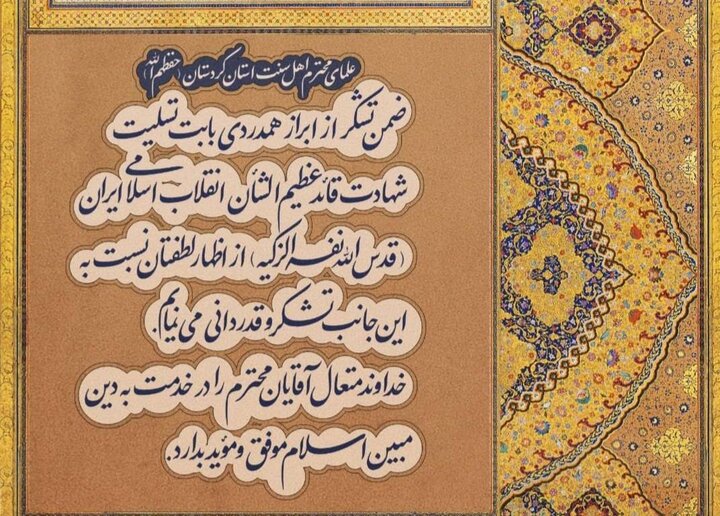 علمای محترم اهل سنت استان کردستان (حفظهم الله)
ضمن تشکر از ابراز همدردی بابت تسلیت
شهادت قائد عظیم الشأن انقلاب اسلامی ایران
(قدس الله نفسه الزکیه) از اظهار لطفتان نسبت به
این جانب تشکر و قدردانی می نمایم.
خداوند متعال آقایان محترم را در خدمت به دین
مبین اسلام موفق و مؤید بدارد.